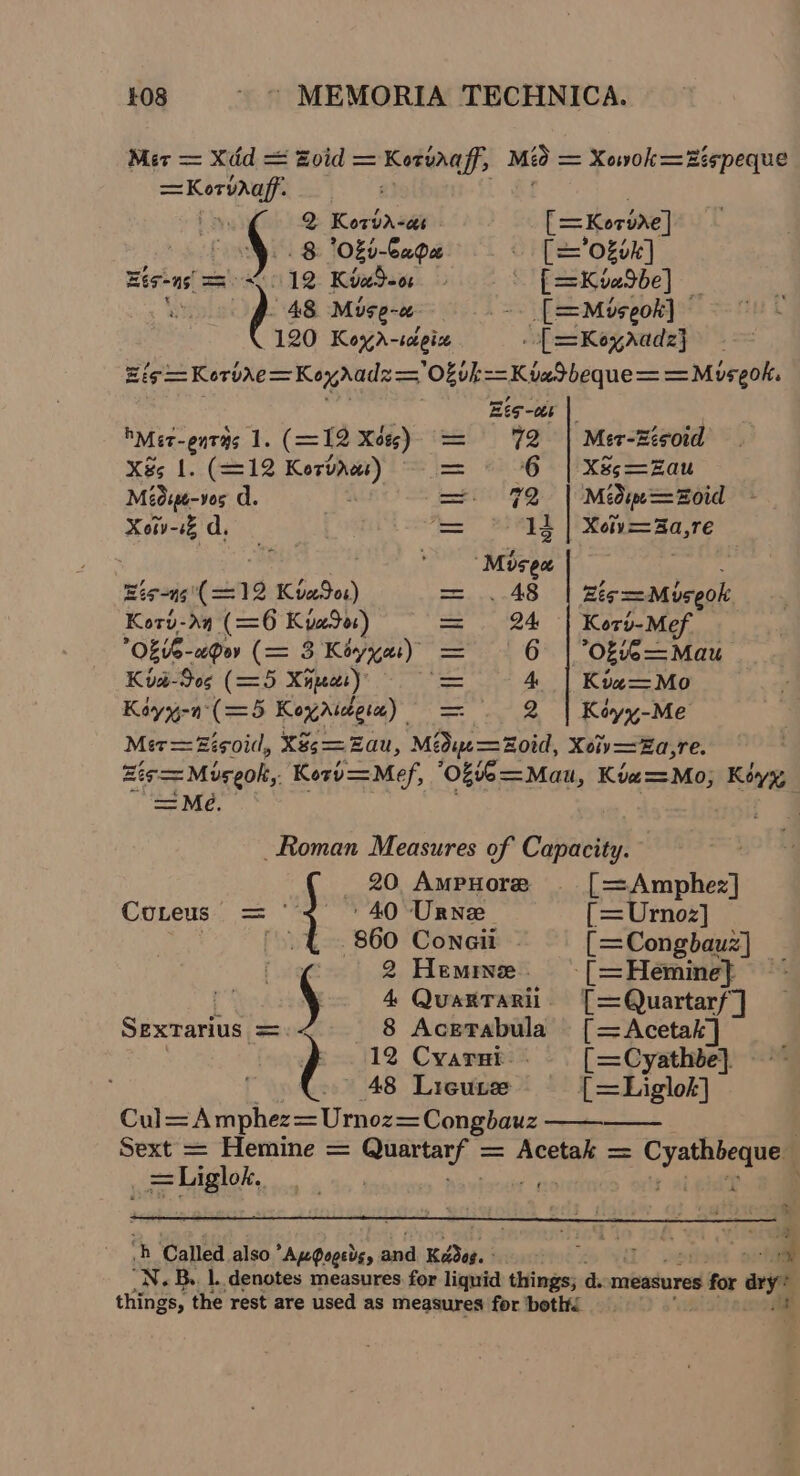 108 MEMORIA TECHNICA.
Μετ = Χὰd = Ξoid = Κοτύλaff, Μέδ = Χοινok=Ξέςpeque
=Κοτύλaff.
2 Κοτύλ-αι [=Κοτύλe]
8 Ὀξύ-βαφα [=Ὀξύk]
Ξές-ης = 12 Κύαθ-οι [=Κύαθbe]
48 Μύςρ-α [=Μύςροk]
120 Κοχλ-ιάρια [=Κοχλadz]
Ξές=Κοτύλe=Κοχλadz=Ὀξύk=Κύαθbeque==Μύςροk.
Ξές-αι
h Μετ-ρητὴς l. (=12 Χόες) = 72 | Μετ-Ξέςoid
Χȣς l. (=12 Κοτύλαι) = 6 | Χȣς=Ξau
Μέδιμ-νος d. = 72 | Μέδιμ=Ξoid
Χοῖν-ιξ d. = 1½ | Χοῖν=Ξa,re
Μύςρα
Ξές-ης (=12 Κύαθοι) = 48 | Ξές=Μύςροk
Κοτύ-λη (=6 Κύαθοι) = 24 | Κοτύ-Mef
Ὀξύβ-αφον (= 3 Κόγχαι) = 6 | Ὀξύβ=Mau
Κύα-θος (=5 Χῆμαι) = 4 | Κύα=Mo
Κόγχ-η (=5 Κοχλιάρια) = 2 | Κόγχ-Me
Μετ=Ξέςoid, Χȣς=Ξau, Μέδιμ=Ξoid, Χοῖν=Ξa,re.
Ξές=Μύςροk, Κοτύ=Mef, Ὀξύβ=Mau, Κύα=Mo, Κόγχ
=Mé.
Roman Measures of Capacity.
20 AMPHoræ [=Amphez]
CULeus = 40 URNæ [=Urnoz]
860 CONGii [=Congbauz]
2 HEMINæ [=Hemine]
4 QUARTARii [=Quartarf]
SEXTarius = 8 ACETabula [=Acetak]
12 CYATHi [=Cyathbe]
48 LIGULæ [=Liglok]
Cul=Amphez=Urnoz=Congbauz ——
Sext = Hemine = Quartarf = Acetak = Cyathbeque
=Liglok.
h Called also Ἀμφορεὺς, and Κάδος.
N. B. l. denotes measures for liquid things; d. measures for dry
things, the rest are used as measures for both.